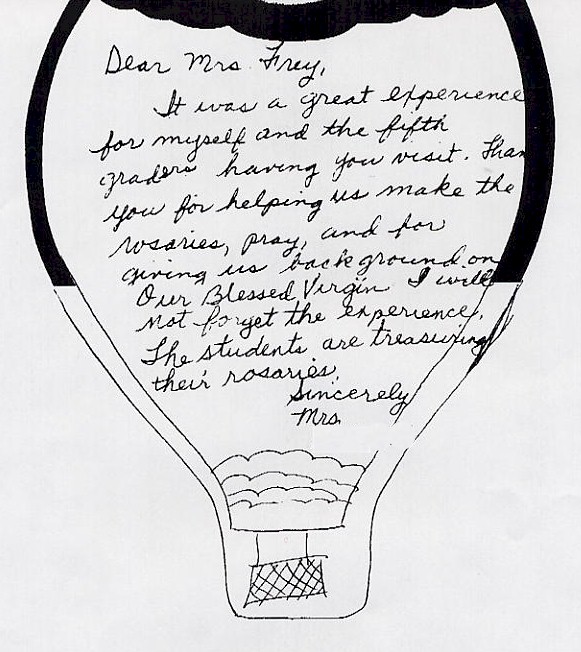 Dear Mrs. Frey,
It was a great experience
for myself and the fifth
graders having you visit. Than
you for helping us make the
rosaries, pray, and for
giving us background on
Our Blessed Virgin I will
not forget the experience.
The students are treasuring
their rosaries.
Sincerely
Mrs.